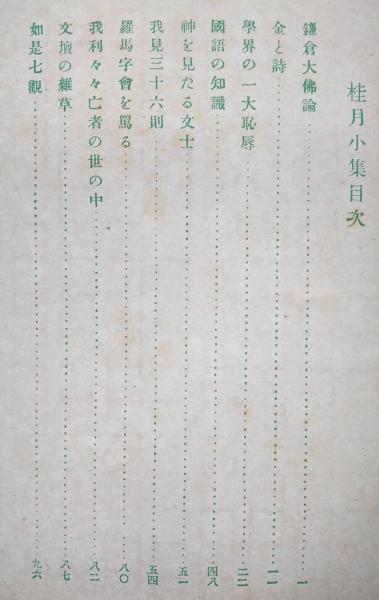 桂月小集目次
鎌倉大佛論……一
金と詩……一一
學界の一大恥辱……二二
國語の知識……四八
神を見たる文士……五一
我見三十六則……五四
羅馬字會を罵る……八〇
我利々々亡者の世の中……八二
文壇の雜草……八七
如是七觀……九六